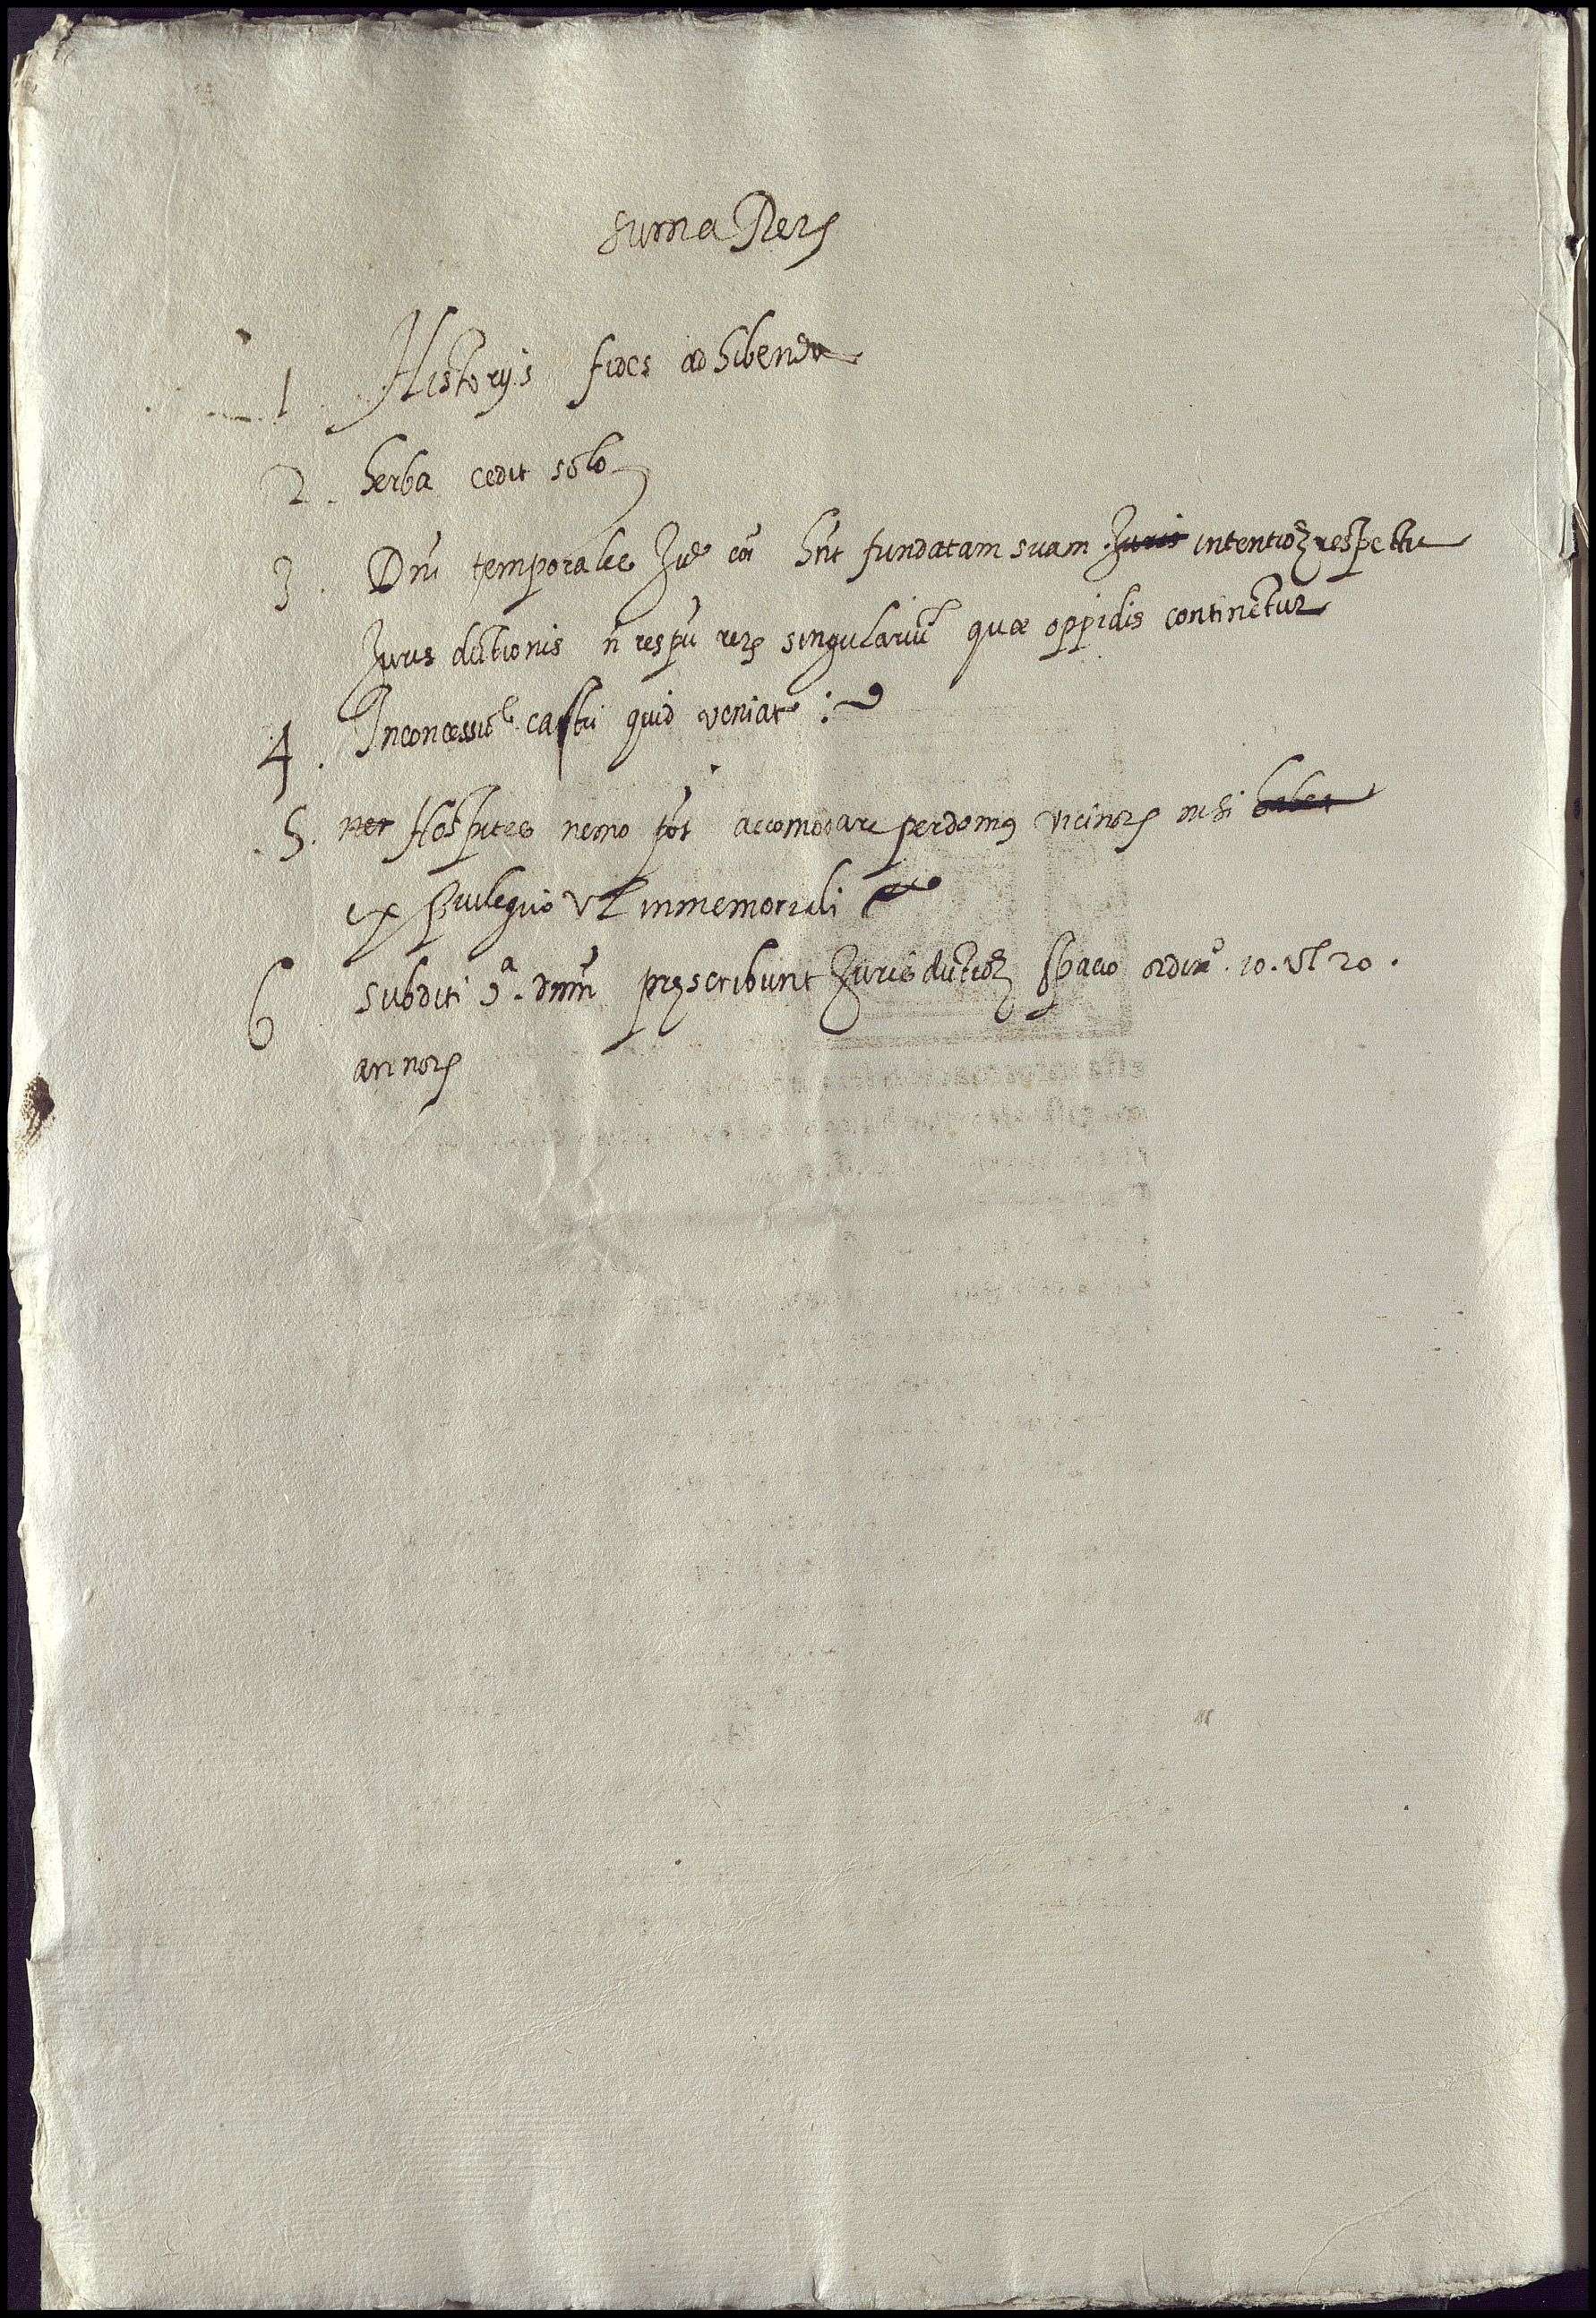 suma Rerꝝ
1 Historijs fides adhibenda
2. herba cedit solo
3. Dn̄i temporales Jure cōi hn̄t fundatam suam Juris intentioꝫ respectu
Jurisdictionis n̄ respū rerꝝ singulariū quæ oppidis continētur
4. In concessiōe castri quid veniat
5. net Hospites nemo pōt accomodare per domꝰ vicinorꝝ nisi habet
ex priuilegio vł inmemoriali
6 subditi 9ᵃ. dnm̄ pręscribunt Jurisdictioꝫ spacio ordinᵒ. 10. vł 20.
annorꝝ